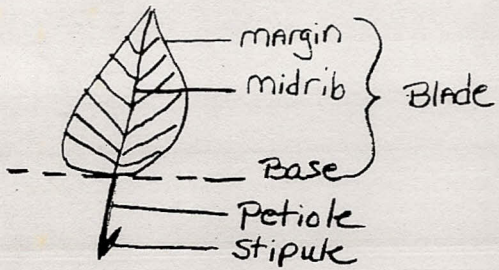 margin
midrib
Blade
Base
Petiole
Stipule